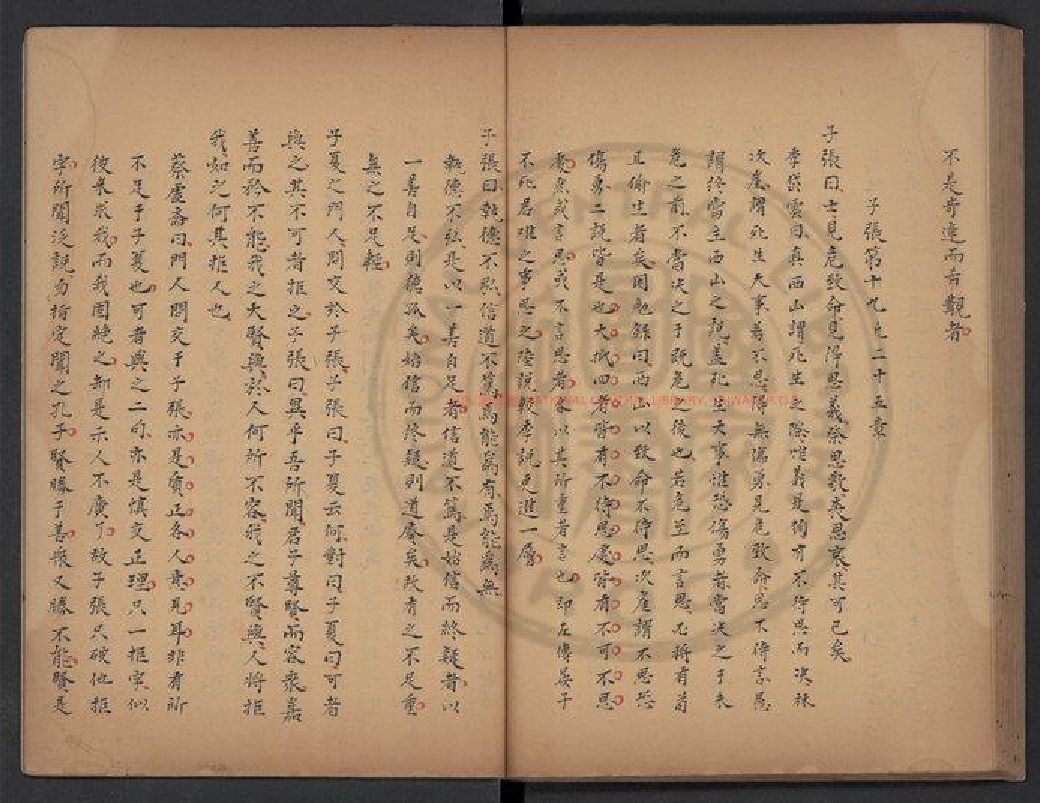 不是奇達而吉觀者
子張第十九凡二十五章
子張曰士見危致命見得思義祭思敬喪思哀其可已矣
李岱雲曰真西山謂死生之際唯義是徇有不待思而決林
次崖謂死生大事若不思得無傷勇見危致命思不待言愚
謂終當主西山之說蓋死生大事惟恐傷勇者當決之于未
危之前不當決之于既危之後也若危至而言思尤將有苟
且偷生者矣困勉錄曰西山以致命不待思次崖謂不思恐
傷勇二說皆是也大抵四者皆有不待思處皆有不可不思
處其或言思或不言思者各以其所重者言也即左傳晏子
不死君難之事思之陸說較李說更進一層
子張曰執德不弘信道不篤焉能為有焉能為無
執德不弘是以一善自足者信道不篤是始信而終疑者以
一善自足則德孤矣始信而終疑則道廢矣故有之不足重
無之不足輕
子夏之門人問交於子張子張曰子夏云何對曰子夏曰可者
與之其不可者拒之子張曰異乎吾所聞君子尊賢而容衆嘉
善而矜不能我之大賢與於人何所不容我之不賢與人將拒
我如之何其拒人也
蔡虛齋曰門人問交于子張亦是質正各人意見耳非有所
不足于子夏也可者與之二句亦是慎交正理只一拒字似
彼來求我而我固絕之却是示人不廣了故子張只破他拒
字所聞泛說勿指定聞之孔子賢勝于善衆又勝不能賢是